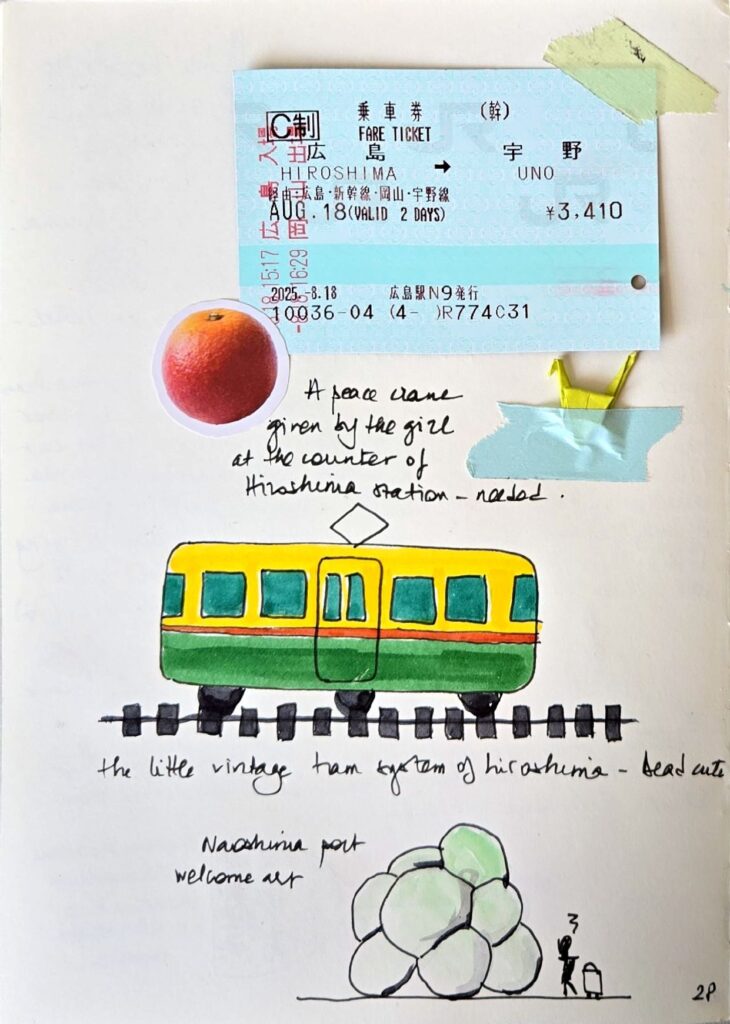 乗車券 (幹)
C制
FARE TICKET
広島 → 宇野
HIROSHIMA UNO
経由:広島・新幹線・岡山・宇野線
AUG.18(VALID 2 DAYS) ¥3,410
2025.-8.18 広島駅N9発行
10036-04 (4- )R774C31
15:17 広島 入場
-8.18 16:29 岡山 出場
A peace crane
given by the girl
at the counter of
Hiroshima station - needed.
the little vintage tram system of hiroshima - dead cute
Naoshima port
welcome art
28